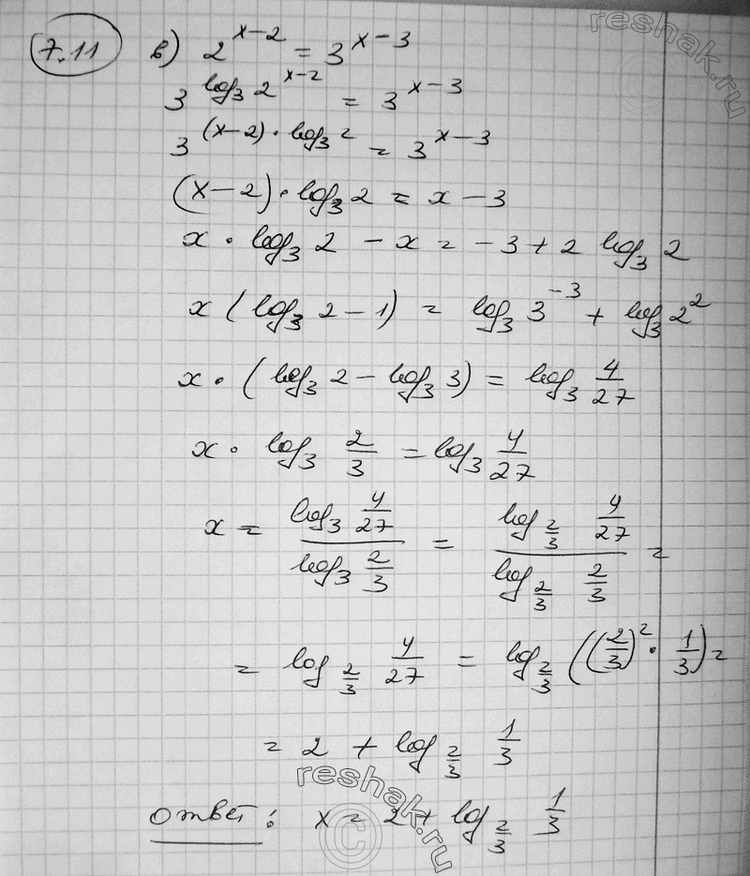 reshak.ru
7.11 в) 2^{x-2} = 3^{x-3}
3^{log_3 2^{x-2}} = 3^{x-3}
3^{(x-2)·log_3 2} = 3^{x-3}
(x-2)·log_3 2 = x-3
x·log_3 2 - x = -3 + 2 log_3 2
x(log_3 2 - 1) = log_3 3^{-3} + log_3 2^2
x·(log_3 2 - log_3 3) = log_3 4/27
x·log_3 2/3 = log_3 4/27
x = (log_3 4/27)/(log_3 2/3) = (log_{2/3} 4/27)/(log_{2/3} 2/3) =
= log_{2/3} 4/27 = log_{2/3} ((2/3)^2 · 1/3) =
= 2 + log_{2/3} 1/3
reshak.ru
©
ответ: x = 2 + log_{2/3} 1/3